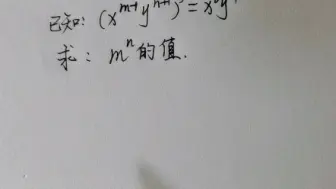 已知: (x^{m-1}y^{n+1}) = x y
求: m^n 的值.